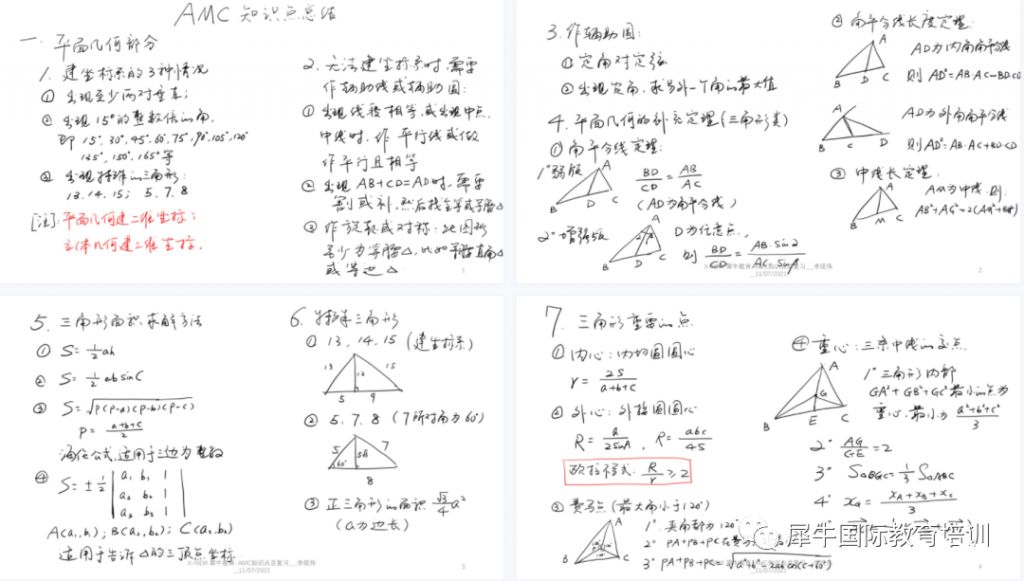 AMC 知识点总结
一. 平面几何部分
1. 建坐标系的3种情况
① 出现至少两对垂直;
② 出现15°的整数倍的角.
即 15°.30°.45°.60°.75°.90°.105°.120°
135°.150°.165°等
③ 出现特殊的三角形:
13.14.15; 5.7.8
[注]: 平面几何建二维坐标;
立体几何建三维坐标.
2. 无法建坐标系时,需要
作辅助线或辅助圆:
① 出现线段相等,或出现中点.
中线时.作平行线或做
作平行且相等
② 出现 AB+CD=AD时.需要
割或补,然后找全等或等腰△
③ 作旋转或对称:此图形
至少为等腰△,比如等腰直角△
或等边△
1
3. 作辅助圆:
① 定角对定弦
② 出现定角,求另外一个角的最大值
4. 平面几何的补充定理(三角形类)
① 角平分线定理:
1°弱版
A
B D C
BD/CD = AB/AC
(AD为角平分线)
2° 增强版
A
B D C
D为任意点.,
则 BD/CD = AB·sin2/AC·sin1
② 角平分线长度定理:
A
B D C
AD为内角角平分线
则 AD²=AB·AC-BD·CD
A
B C D
AD为外角角平分线
则AD²=AB·AC+BD·CD
③ 中线长定理:
A
B M C
AM为中线.则:
AB²+AC²=2(AM²+BM²)
11/07/2021
2
5. 三角形面积求解方法
① S=½ah
② S=½absinC
③ S=√P(P-a)(P-b)(P-c)
P= a+b+c/2
海伦公式,适用于三边为整数
④ S=±½ |a₁ b₁ 1|
a₂ b₂ 1
a₃ b₃ 1
A(a₁.b₁); B(a₂,b₂); C(a₃.b₃)
适用于告诉△的三顶点坐标.
6. 特殊三角形
① 13.14.15 (建坐标系)
13 12 15
5 9
② 5.7.8 (7所对角为60°)
5 7
60°
8
③ 正三角形的面积 √3/4 a²
(a为边长)
X-NEW 犀牛教育-AMC知识点总复习__李琨伟
__11/07/2021
3
7. 三角形重要的点
① 内心:内切圆圆心
r= 2S/a+b+c
② 外心:外接圆圆心
R= a/2sinA , R= abc/4S
欧拉不等式: R/r ≥2
③ 费马点 (最大角小于120°)
A
B C
1° 夹角都为120°
2° PA+PB+PC
3° PA+PB+PC=
④ 重心:三条中线的交点
A
G
B E C
1° 三角形内部
GA²+GB²+GC²最小的点为
重心.最小为 a²+b²+c²/3
2° AG/GE=2
3° S△BGC=⅓S△ABC
4° xG= xA+xB+xC/3
犀牛国际教育培训
__11/07/2021
4